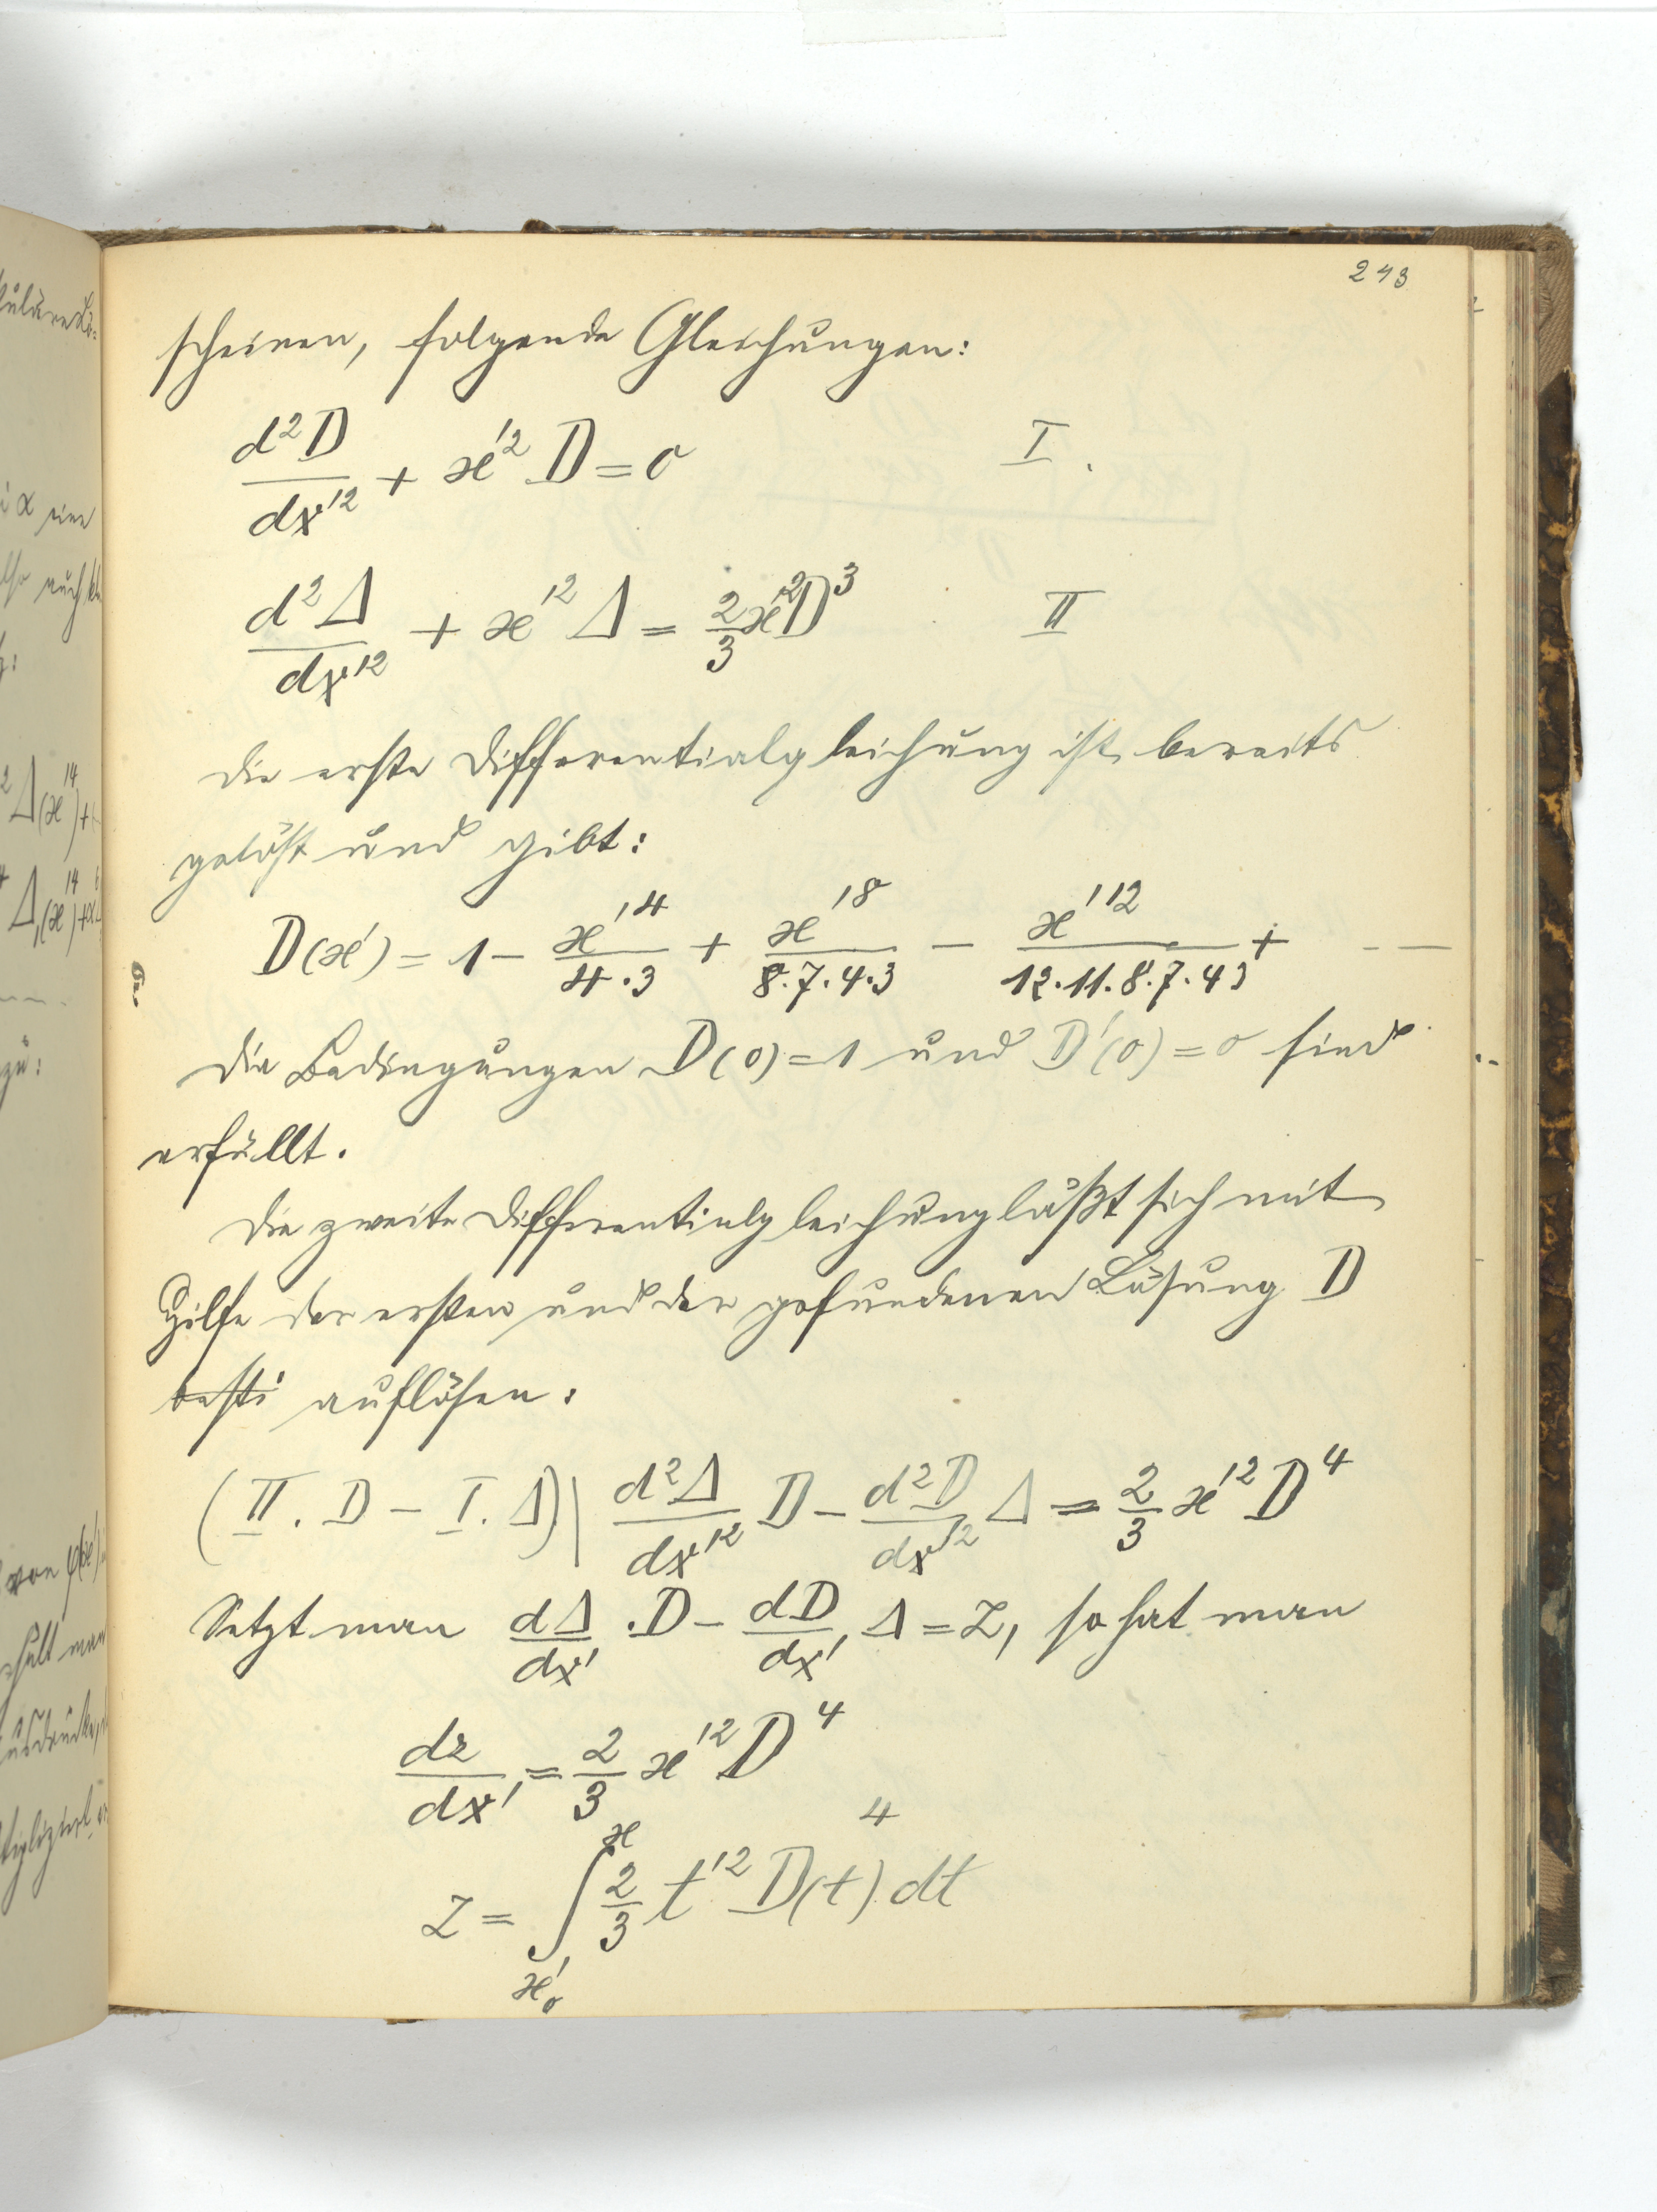 243
scheinen, folgende Gleichungen:
d²D/dx'² + x'² D = 0   I.
d²Δ/dx'² + x'² Δ = 2/3 x'² D³   II
Die erste Differentialgleichung ist bereits
gelöst und gibt:
D(x') = 1 - x'⁴/4·3 + x'⁸/8·7·4·3 - x'¹²/12·11·8·7·4 3 + - —
Die Bedingungen D(0) = 1 und D'(0) = 0 sind
erfüllt.
Die zweite Differentialgleichung läßt sich mit
Hilfe der ersten und der gefundenen Lösung D
besti auflösen:
(II. D - I. Δ)| d²Δ/dx'² D - d²D/dx'² Δ = 2/3 x'² D⁴
Setzt man dΔ/dx' · D - dD/dx' Δ = Z, so hat man
dz/dx' = 2/3 x'² D⁴
Z = ∫ₓ'₀ˣ 2/3 t'² D(t)⁴ dt